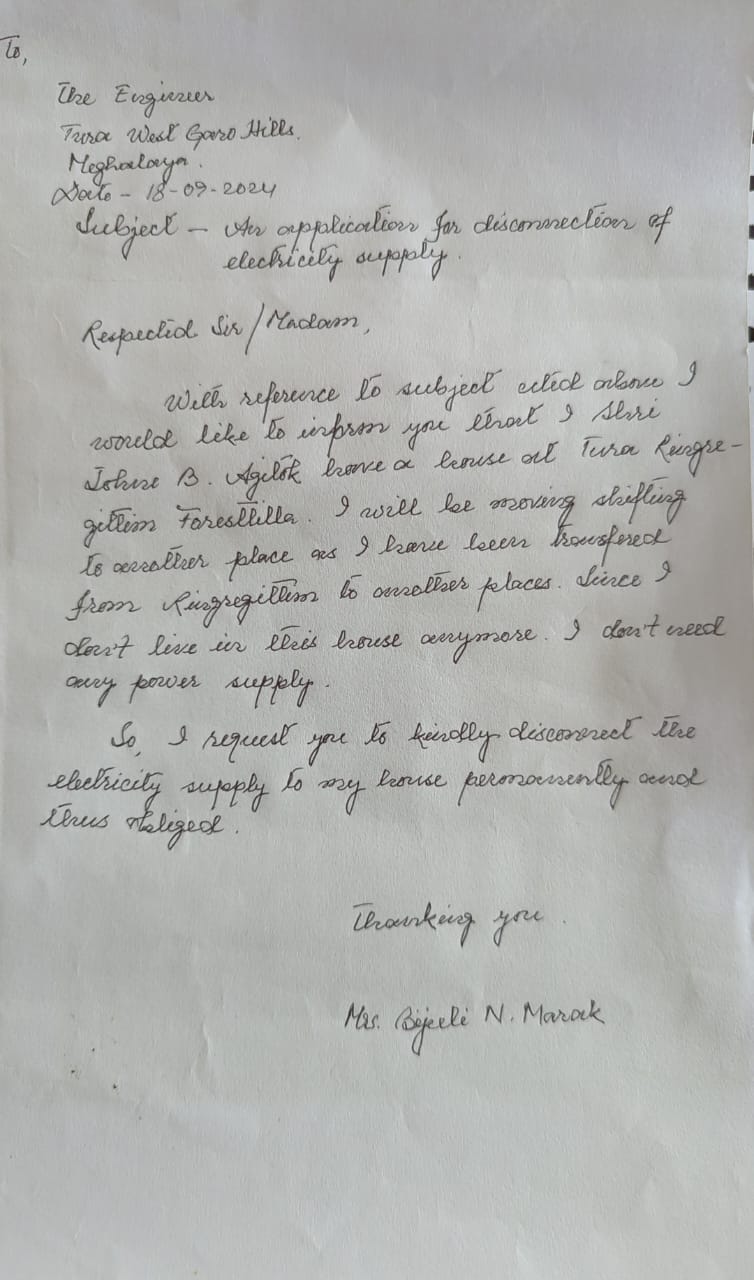 To,
The Engineer
Tura West Garo Hills.
Meghalaya.
Date - 18-09-2024
Subject - An application for disconnection of
electricity supply.
Respected Sir/Madam,
With reference to subject cited above I
would like to inform you that I Shri
Johne B. Agitok have a house at Tura Ringre-
gittim Foresttilla. I will be moving shifting
to another place as I have been transfered
from Ringregittim to another places. Since I
don't live in this house anymore. I don't need
any power supply.
So, I request you to kindly disconnect the
electricity supply to my house permanently and
thus obliged.
Thanking you.
Mrs. Bijeeli N. Marak